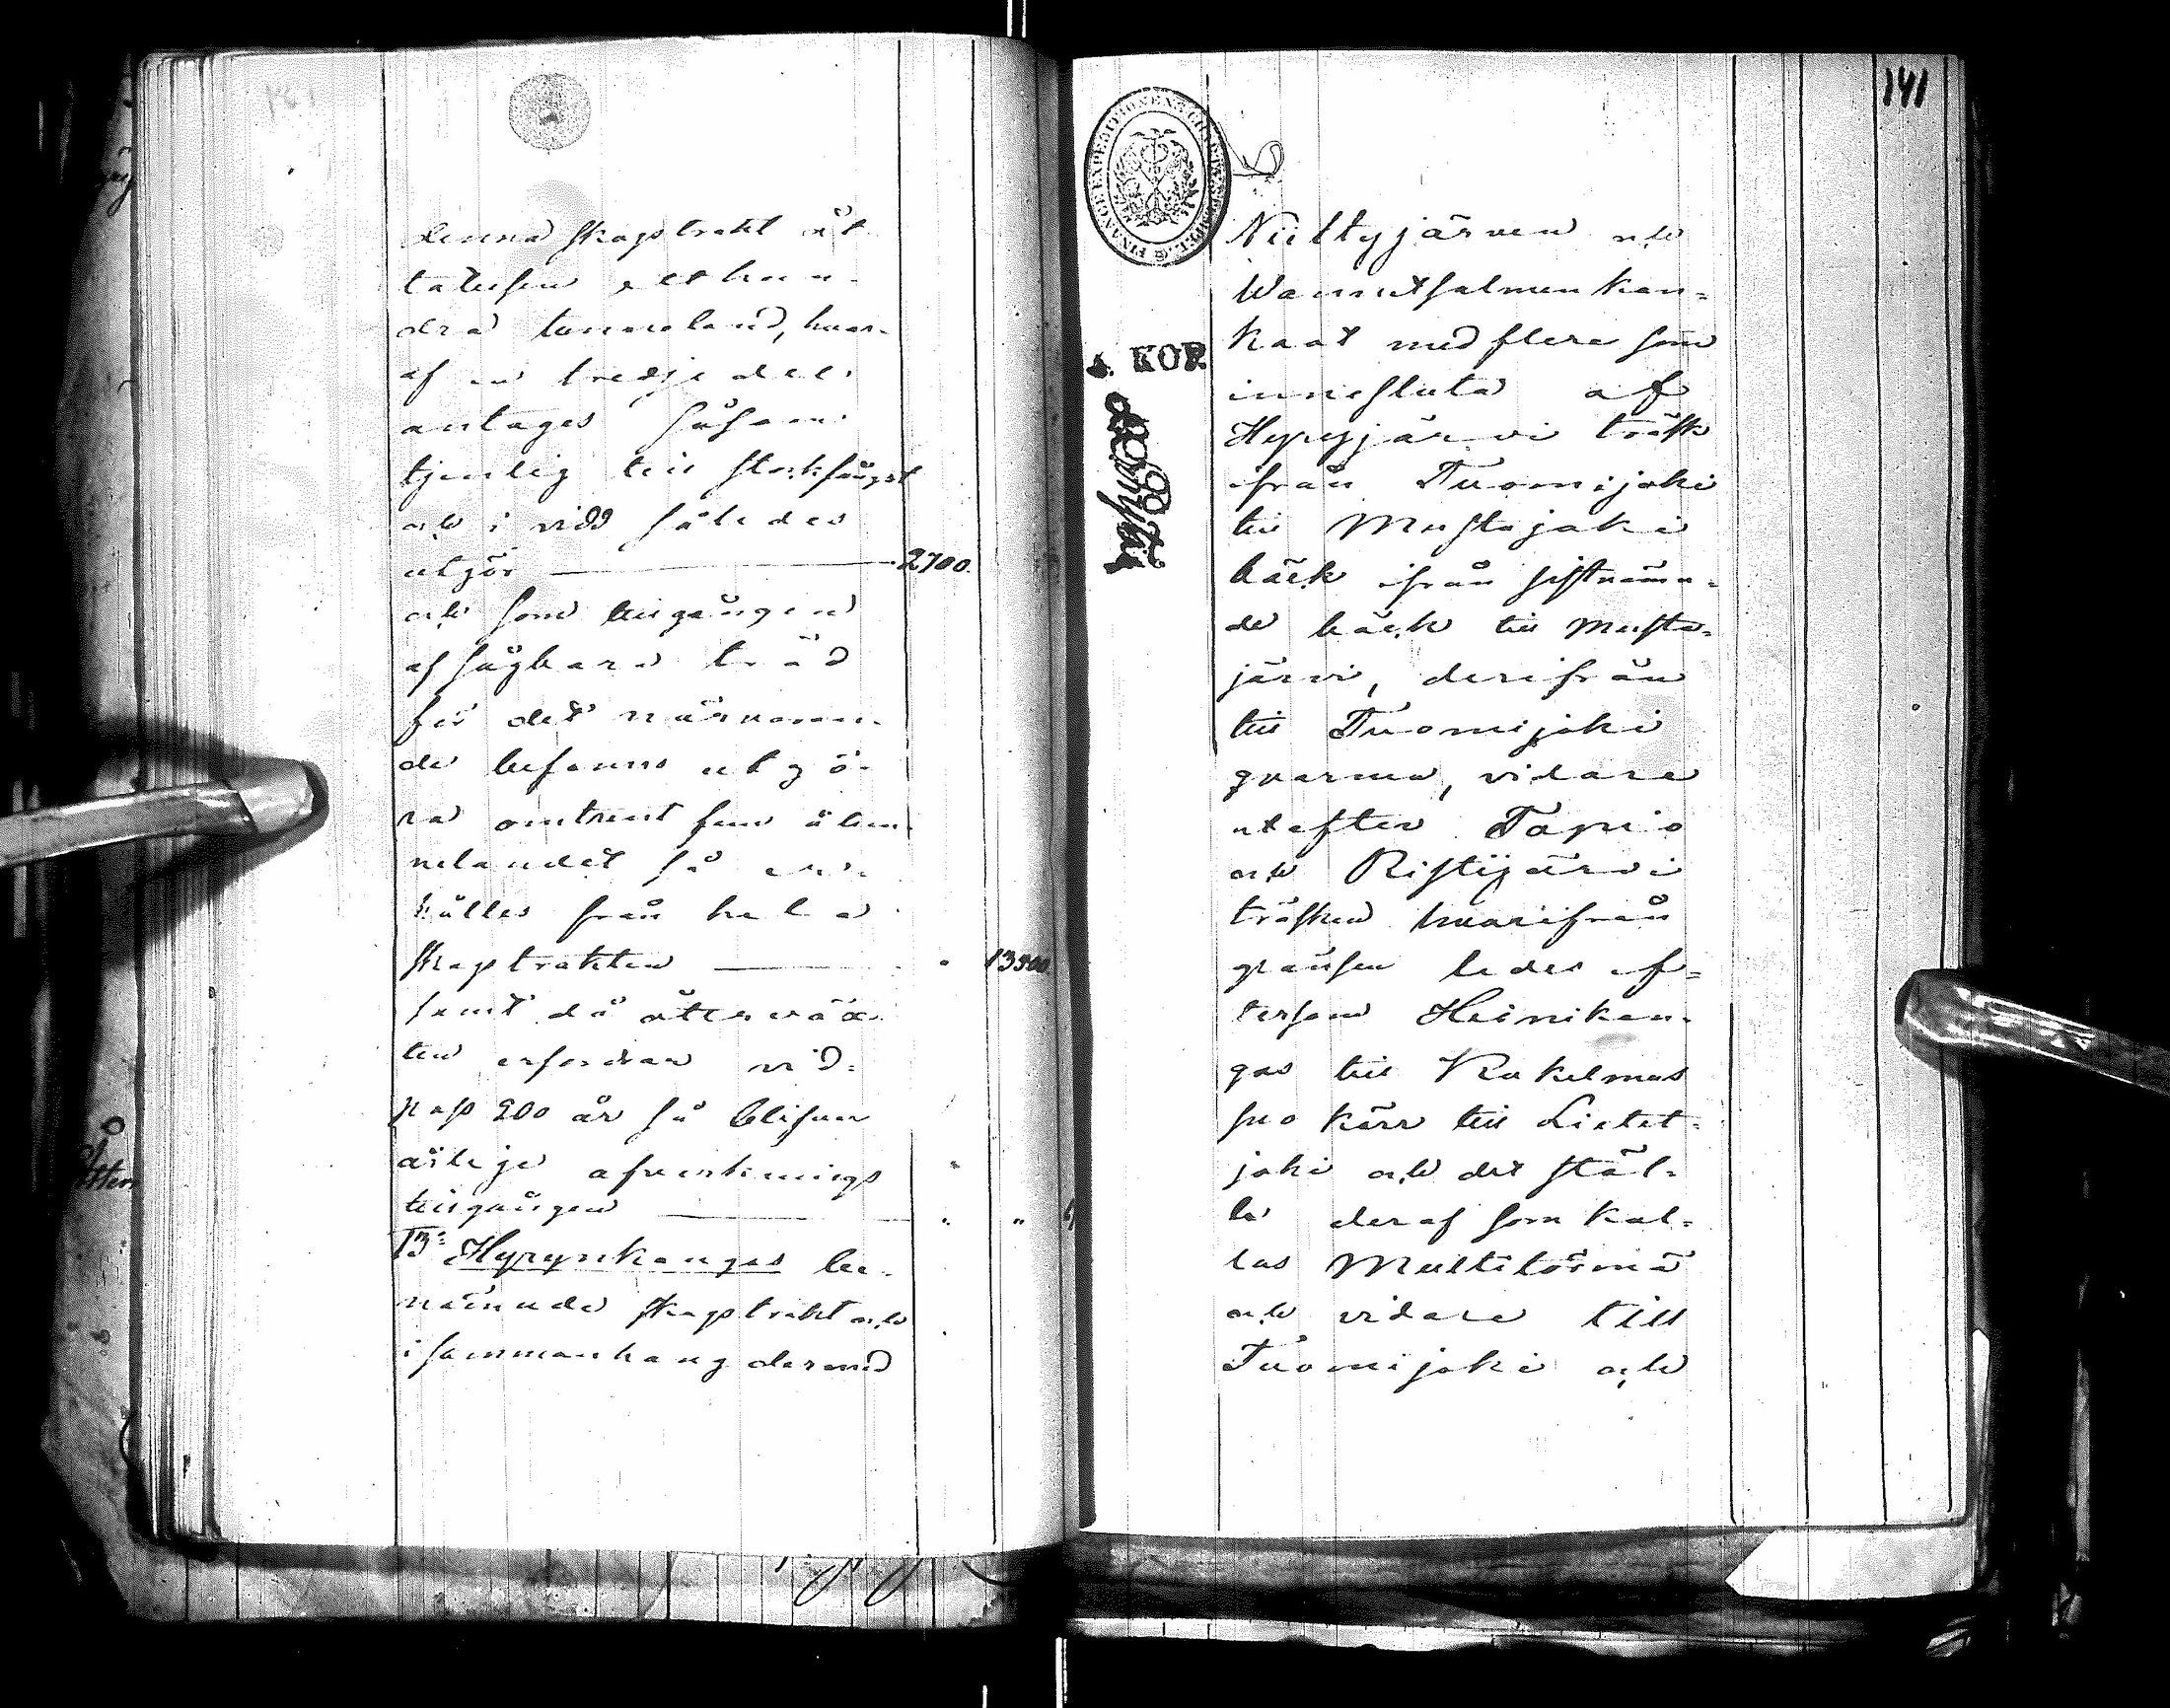 denna skogstrakt åt
tatusen etthun-
dra tunneland, hvar-
af en tredjedel
antages såsom
tjenlig till stockfångst
och i vidd således
utgör — 2700.
och som tillgången
af sågbara träd
för det närvaran-
de befanns utgö-
ra omtrent fem å tun-
nelandet så er-
hålles från hela
skogstrakten — 13500
samt då återväx
ten erfordrar vid-
pass 200 år så blifver
årliga afverknings
tillgången —
13: Hyrynkangas be-
nämnde skogstrakt och
i sammanhang dermed
141
FINANCE EXPEDITIONENS
KOP.
Niittyjärven och
Wannesalmen kan-
kaat med flera som
inneslutas af
Hyryjärvi träsk
ifrån Tuomijoki
till Mustajoki
bäck ifrån sistnämn-
de bäck till Musta-
järvi, derifrån
till Tuomijoki
qvarnen, vidare
utefter Tapio
och Ristijärvi
träsken hvarifrån
gränsen ledes ef-
tersom Heinikan-
gas till Kukelmas
suo kärr till Lietet-
joki och det stäl-
le deraf som kal-
las Multitörmä
och vidare till
Tuomijoki och